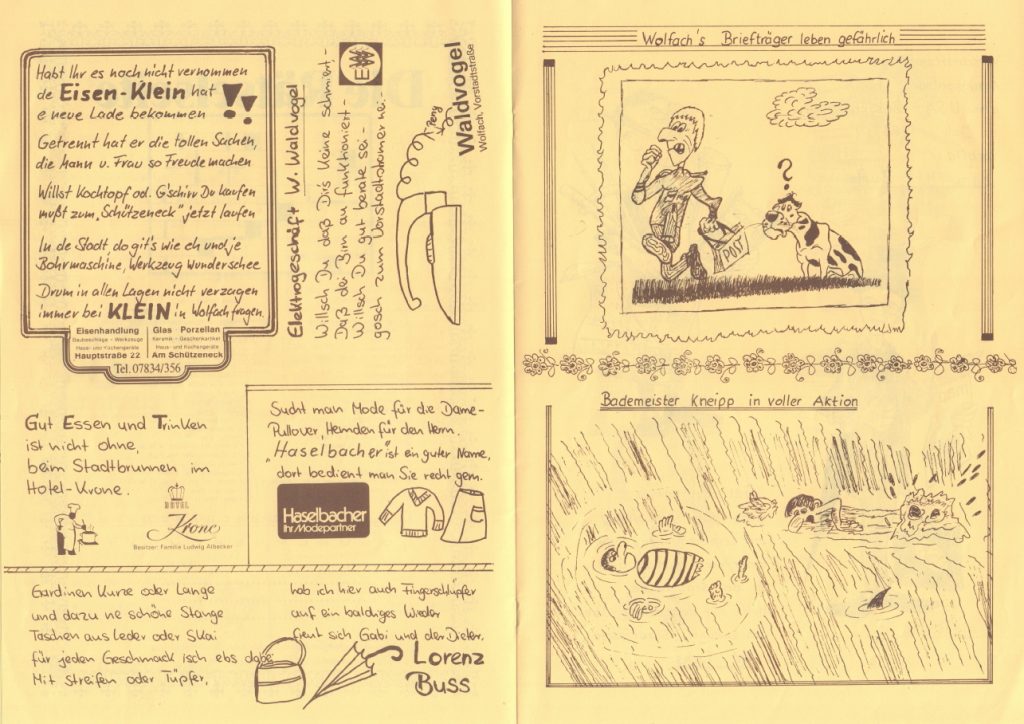 Habt Ihr es noch nicht vernommen
de Eisen-Klein hat
e neue Lade bekommen !!
Getrennt hat er die tollen Sachen,
die Mann u. Frau so Freude machen
Willst Kochtopf od. G'schirr Du kaufen
mußt zum „Schützeneck" jetzt laufen
In de Stadt, do git's wie eh und je
Bohrmaschine, Werkzeug wunderschee
Drum in allen Lagen nicht verzagen
immer bei KLEIN in Wolfach fragen.
Eisenhandlung
Baubeschläge - Werkzeuge
Haus- und Küchengeräte
Hauptstraße 22
Glas Porzellan
Keramik - Geschenkartikel
Haus- und Küchengeräte
Am Schützeneck
Tel. 07834/356
Elektrogeschäft W. Waldvogel
Willsch Du daß Dirs Kleine schmiert -
Daß dei Birn au funktioniert -
Willsch Du gut berate sei -
gosch zum Vorstadtstromer nei -
EW
Peng
Waldvogel
Wolfach, Vorstadtstraße
Gut Essen und Trinken
ist nicht ohne,
beim Stadtbrunnen im
Hotel-Krone.
HOTEL
Krone
Besitzer: Familie Ludwig Albecker
Sucht man Mode für die Dame-
Pullover, Hemden für den Herrn.
„Haselbacher" ist ein guter Name,
dort bedient man Sie recht gern.
Haselbacher
Ihr Modepartner
Gardinen Kurze oder Lange
und dazu ne schöne Stange
Taschen aus Leder oder Skai
für jeden Geschmack isch ebs dabei
Mit Streifen oder Tüpfer,
hab ich hier auch Fingerschlüpfer
auf ein baldiges Wieder
freut sich Gabi und der Dieter.
Lorenz
Buss
Wolfach's Briefträger leben gefährlich
?
POST
Bademeister Kneipp in voller Aktion